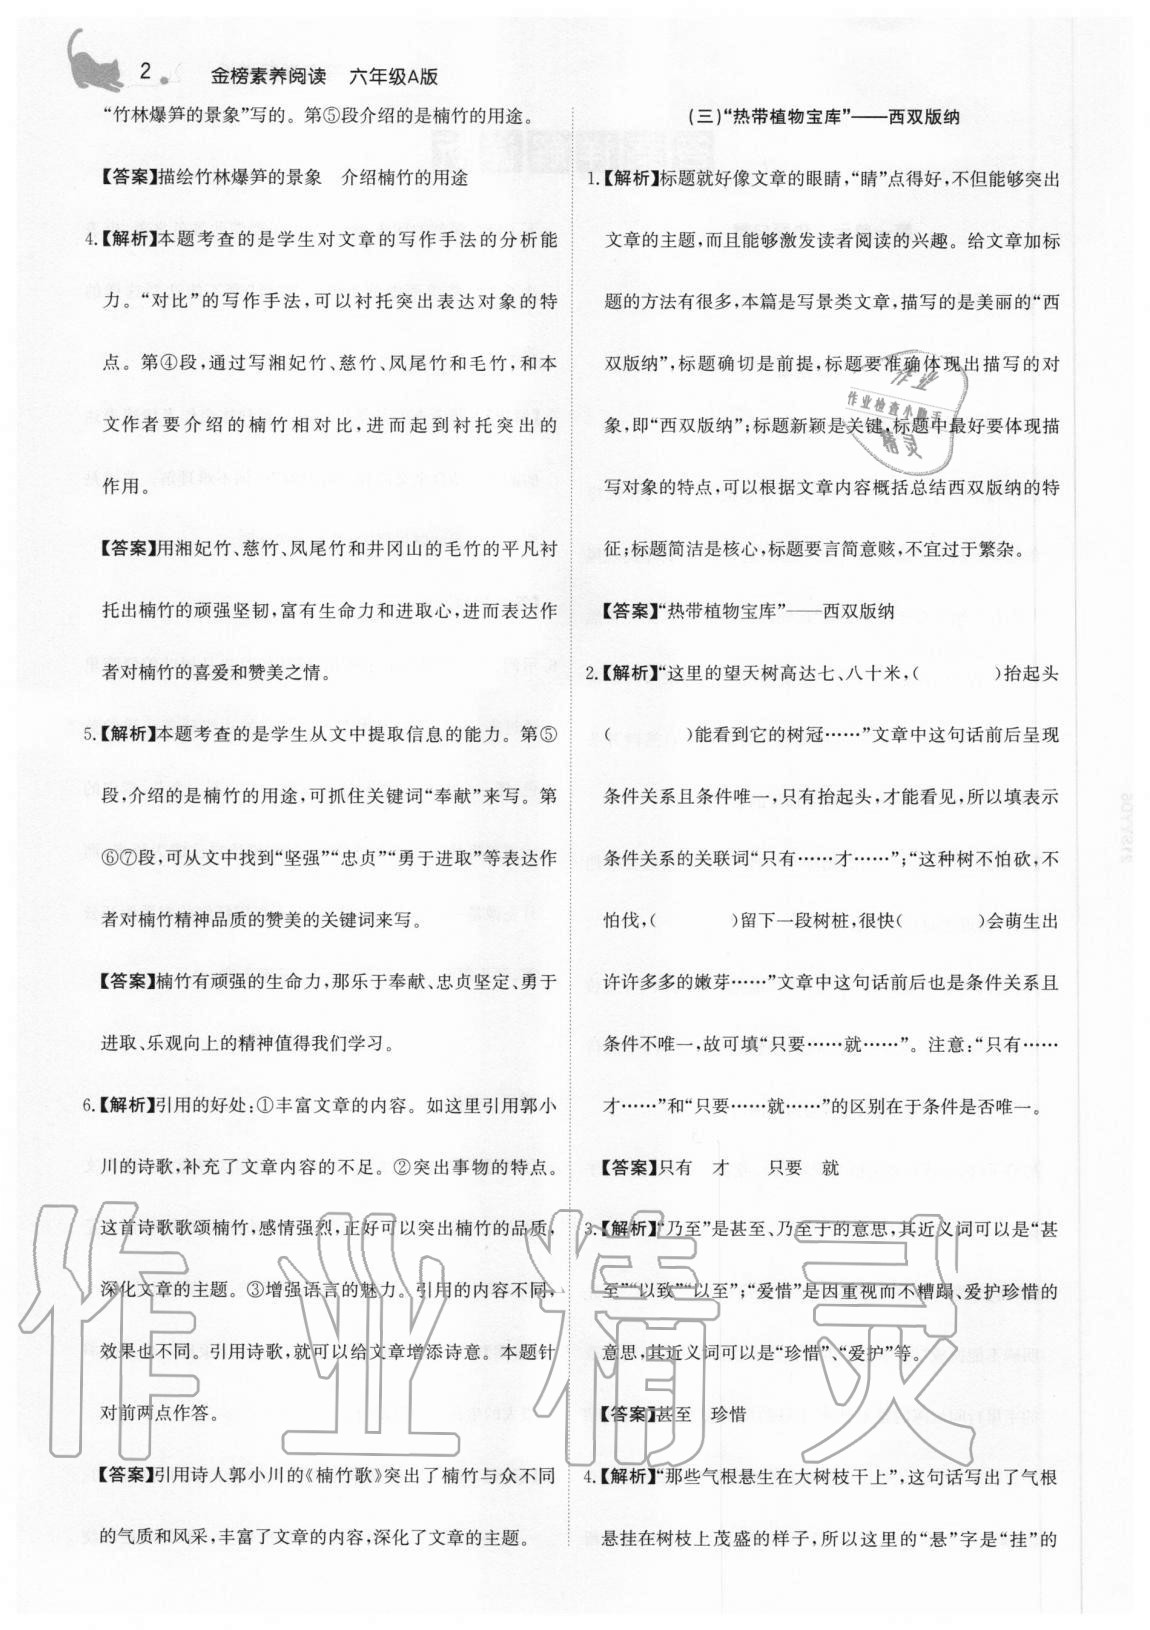 2
金榜素养阅读　六年级A版
“竹林爆笋的景象”写的。第⑤段介绍的是楠竹的用途。
【答案】描绘竹林爆笋的景象　介绍楠竹的用途
4.【解析】本题考查的是学生对文章的写作手法的分析能
力。“对比”的写作手法,可以衬托突出表达对象的特
点。第④段,通过写湘妃竹、慈竹、凤尾竹和毛竹,和本
文作者要介绍的楠竹相对比,进而起到衬托突出的
作用。
【答案】用湘妃竹、慈竹、凤尾竹和井冈山的毛竹的平凡衬
托出楠竹的顽强坚韧,富有生命力和进取心,进而表达作
者对楠竹的喜爱和赞美之情。
5.【解析】本题考查的是学生从文中提取信息的能力。第⑤
段,介绍的是楠竹的用途,可抓住关键词“奉献”来写。第
⑥⑦段,可从文中找到“坚强”“忠贞”“勇于进取”等表达作
者对楠竹精神品质的赞美的关键词来写。
【答案】楠竹有顽强的生命力,那乐于奉献、忠贞坚定、勇于
进取、乐观向上的精神值得我们学习。
6.【解析】引用的好处:①丰富文章的内容。如这里引用郭小
川的诗歌,补充了文章内容的不足。②突出事物的特点。
这首诗歌歌颂楠竹,感情强烈,正好可以突出楠竹的品质,
深化文章的主题。③增强语言的魅力。引用的内容不同,
效果也不同。引用诗歌,就可以给文章增添诗意。本题针
对前两点作答。
【答案】引用诗人郭小川的《楠竹歌》突出了楠竹与众不同
的气质和风采,丰富了文章的内容,深化了文章的主题。
(三)“热带植物宝库”——西双版纳
1.【解析】标题就好像文章的眼睛,“睛”点得好,不但能够突出
文章的主题,而且能够激发读者阅读的兴趣。给文章加标
题的方法有很多,本篇是写景类文章,描写的是美丽的“西
双版纳”,标题确切是前提,标题要准确体现出描写的对
象,即“西双版纳”;标题新颖是关键,标题中最好要体现描
写对象的特点,可以根据文章内容概括总结西双版纳的特
征;标题简洁是核心,标题要言简意赅,不宜过于繁杂。
【答案】“热带植物宝库”——西双版纳
2.【解析】“这里的望天树高达七、八十米,(　　　)抬起头
(　　　)能看到它的树冠……”文章中这句话前后呈现
条件关系且条件唯一,只有抬起头,才能看见,所以填表示
条件关系的关联词“只有……才……”;“这种树不怕砍,不
怕伐,(　　　)留下一段树桩,很快(　　　)会萌生出
许许多多的嫩芽……”文章中这句话前后也是条件关系且
条件不唯一,故可填“只要……就……”。注意:“只有……
才……”和“只要……就……”的区别在于条件是否唯一。
【答案】只有　才　只要　就
3.【解析】“乃至”是甚至、乃至于的意思,其近义词可以是“甚
至”“以致”“以至”;“爱惜”是因重视而不糟蹋、爱护珍惜的
意思,其近义词可以是“珍惜”、“爱护”等。
【答案】甚至　珍惜
4.【解析】“那些气根悬生在大树枝干上”,这句话写出了气根
悬挂在树枝上茂盛的样子,所以这里的“悬”字是“挂”的
作业
作业检查小助手
精灵
作业精灵